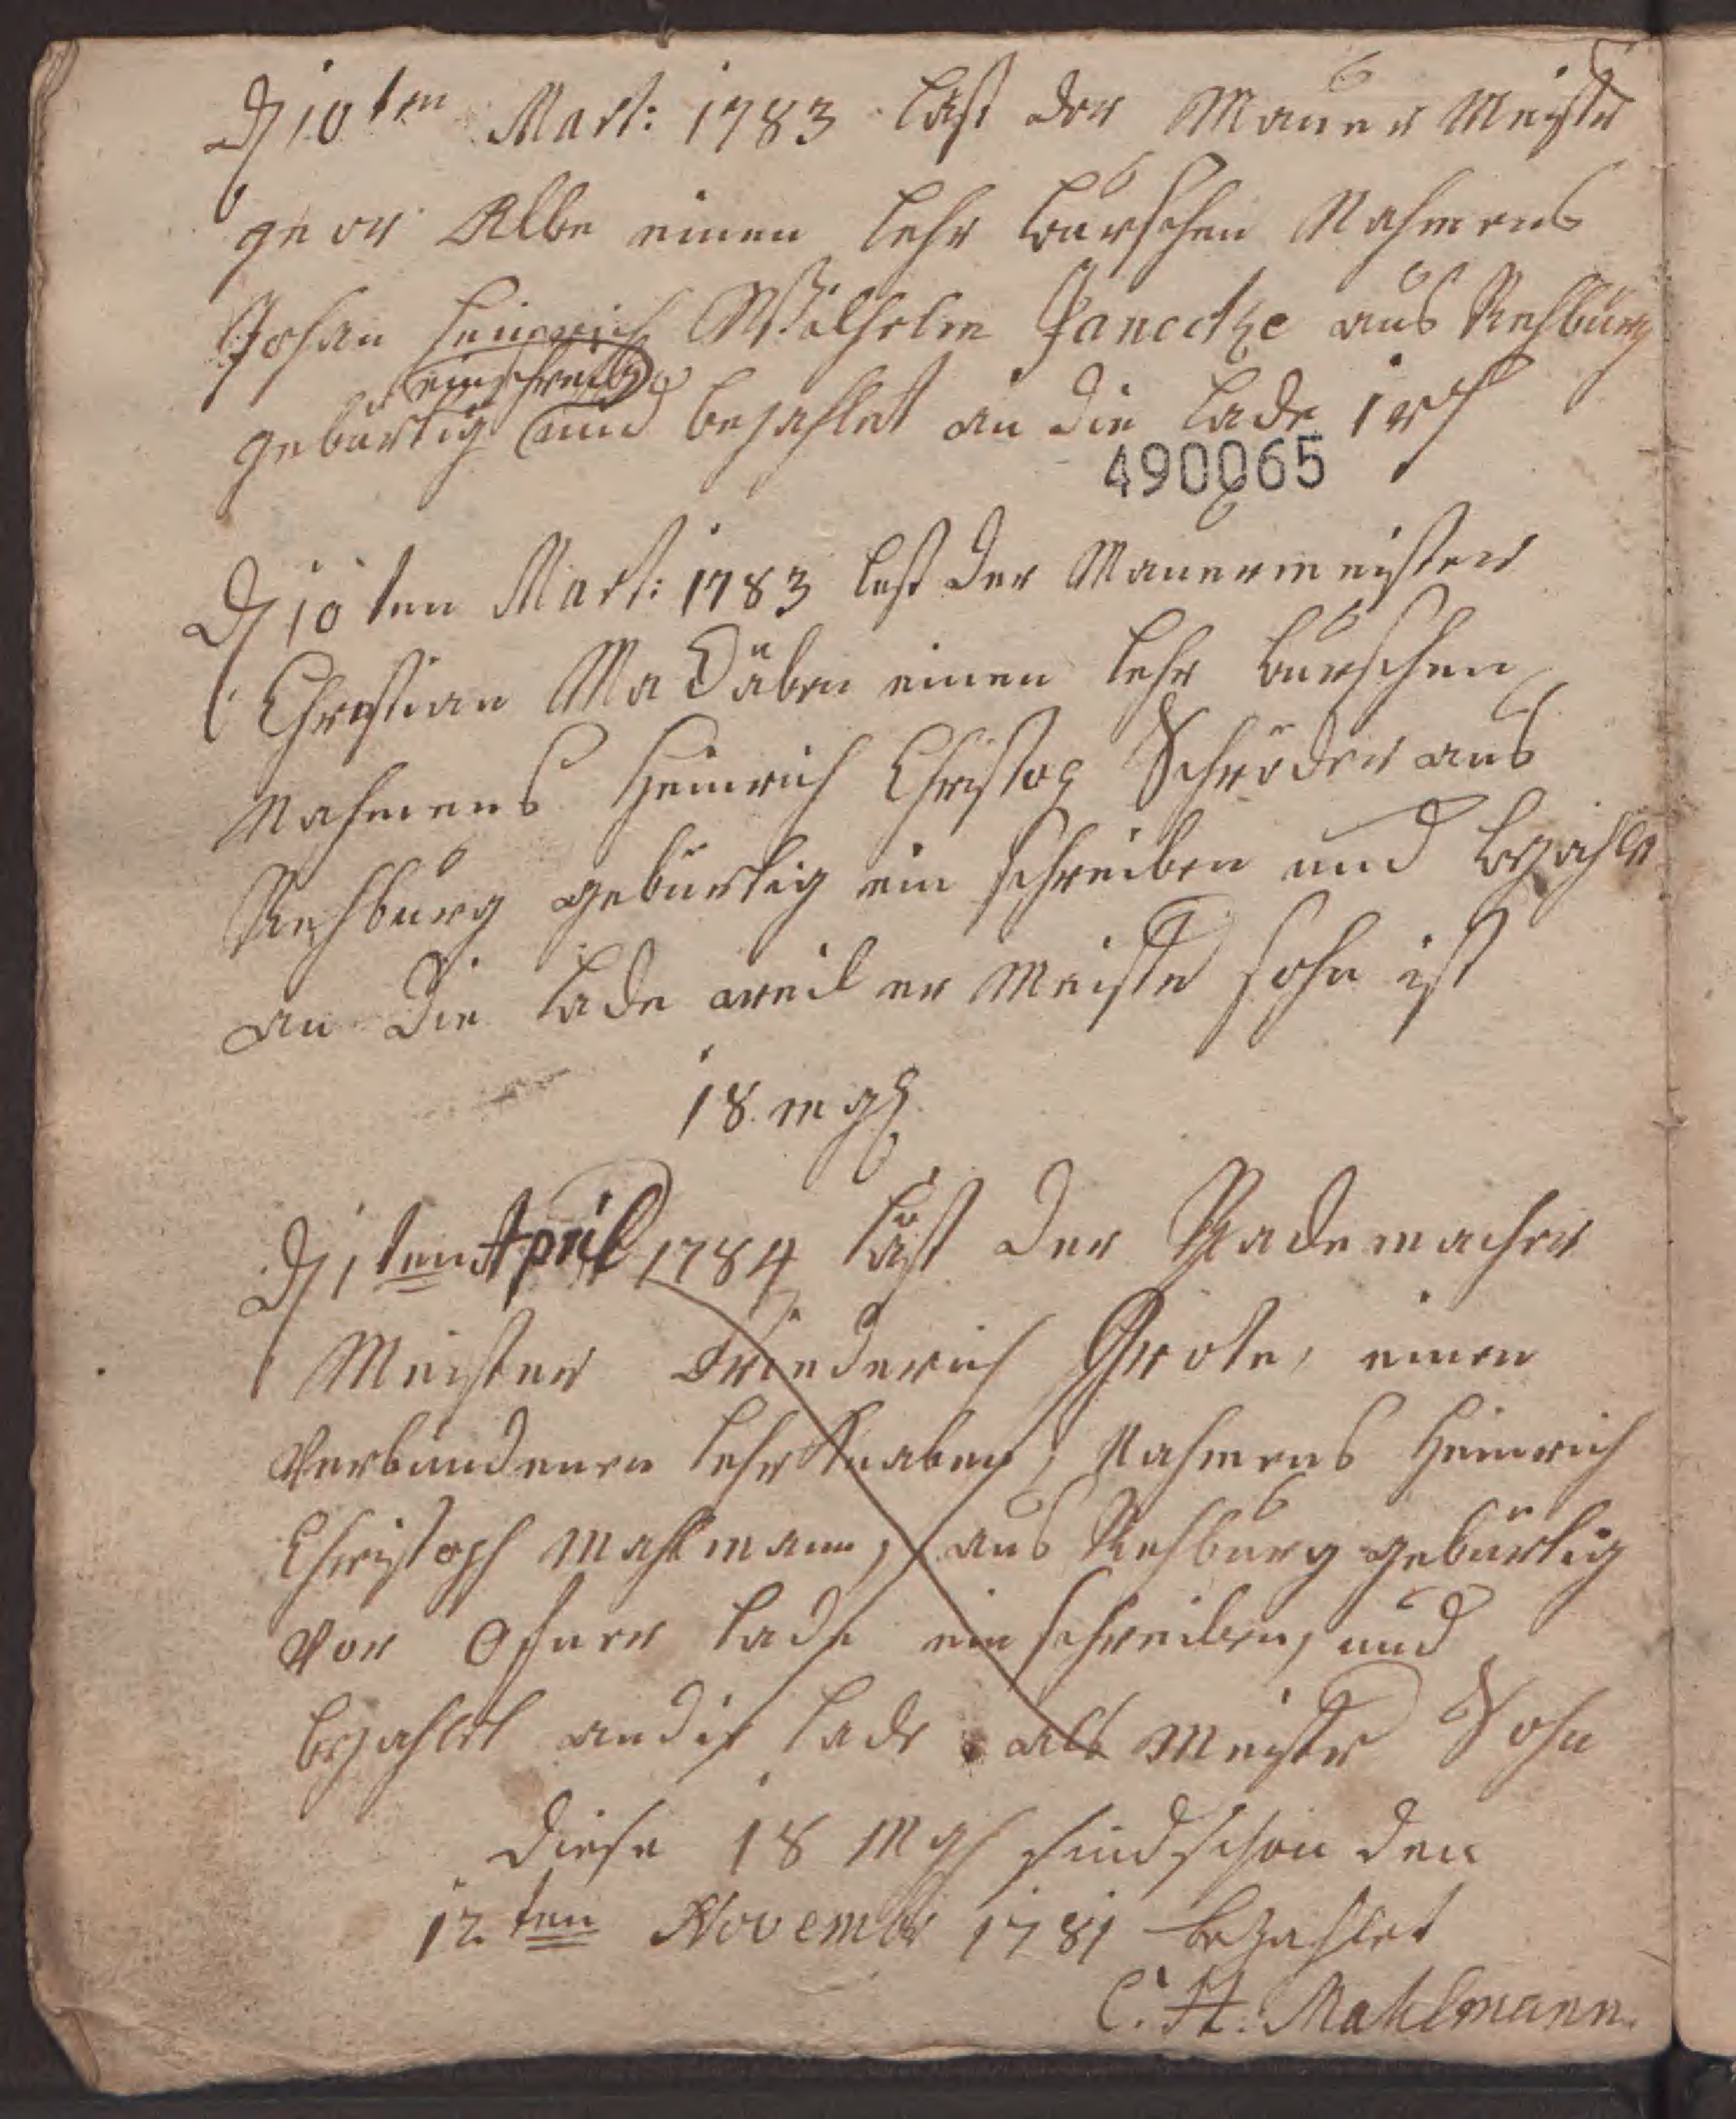 D 10ten Mart: 1783 läst der Maurer Meistr
geor Albe einen Lehr burschen Nahmens
Johan Heinrich Wilhelm Janecke aus Rehburg
einschreib
gebürtig und bezahlet an die lade 1 rth
490065
D 10ten Mart: 1783 lest der Mauermeister
Christian einen Lehr burschen
Nahmens Heinrich Christop Schröder aus
Rehburg gebürtig ein schreiben und bezahlt
an die lade weil er Meister sohn ist
18 mgl
D 1ten April 1784 läst der Rademacher
Meister Friederich Grote, einen
Verbundenen Lehr Knaben, Nahmens Heinrich
Christoph Mahlmann, aus Rehburg gebürtig
vor ofner lade ein schreiben, und
bezahlet an die lade als Meistr Sohn
diese 18 Mgl sind schon den
12ten Novembr 1781 bezahlet
C. H. Mahlmann.